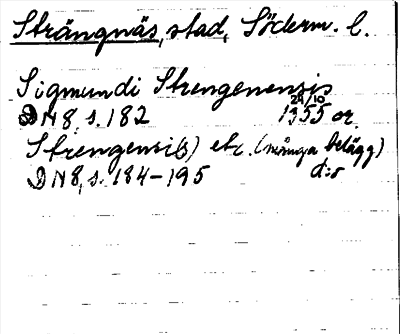 Strängnäs, stad, Söderm. l.
Sigmundi Strengenensis
29/10
DN 8, s. 182 1355 or.
Strengensi(s) etc. (många belägg)
DN 8, s. 184-195 d:o